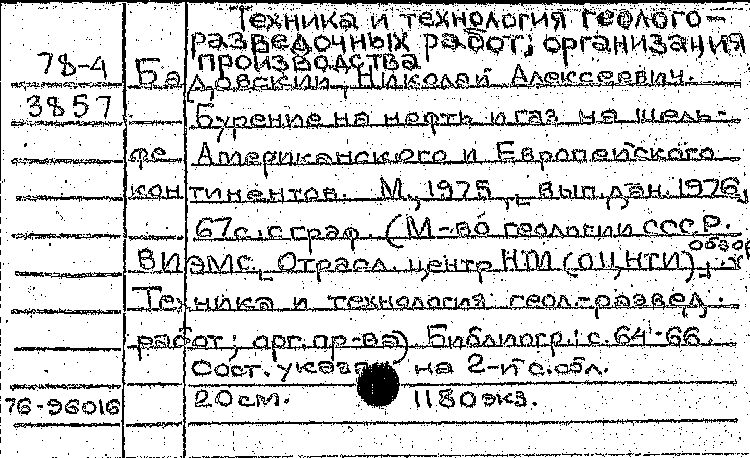 Техника и технология геолого-
разведочных работ; организация
производства
78-4 Бадовский, Николай Алексеевич.
3857 Бурение на нефть и газ на шель-
фе Американского и Европейского
континентов. М., 1975, вып. дан. 1976,
67 с. с граф. (М-во геологии СССР.
обзор
ВИЭМС. Отрасл. центр НТИ (ОЦНТИ).
Техника и технология геол.-развед.
работ; орг. пр-ва) Библиогр.: с. 64-66.
Сост. указан на 2-й с. обл.
76-96016 20 см. 1180 экз.